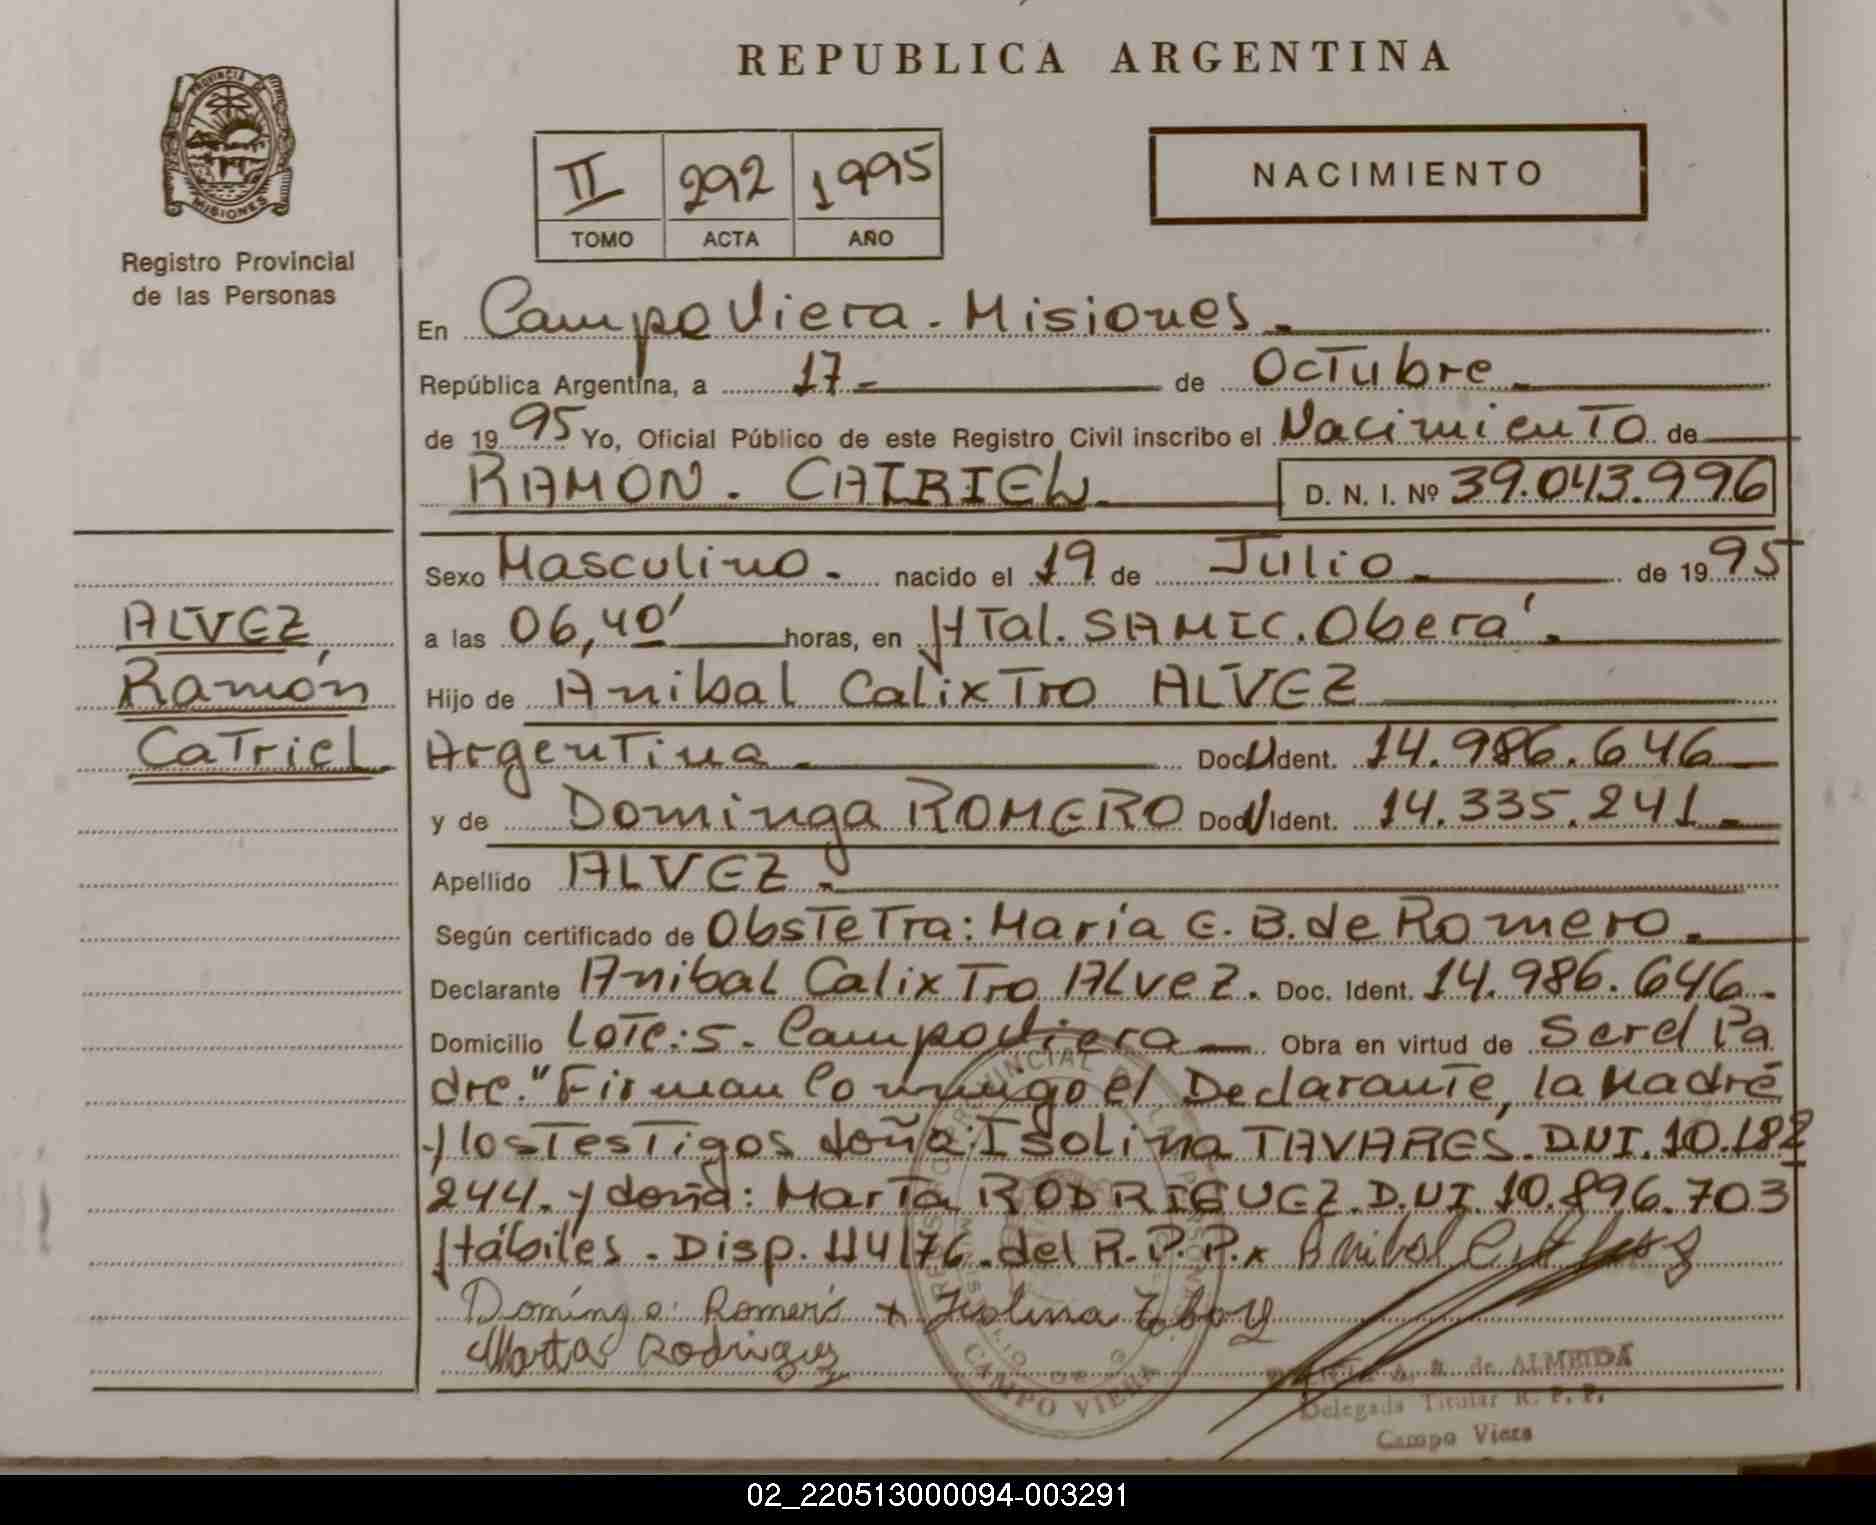 PROVINCIA DE
MISIONES
Registro Provincial
de las Personas
REPUBLICA ARGENTINA
II 292 1995
TOMO ACTA AÑO
NACIMIENTO
En Campo Viera. Misiones.
República Argentina, a 17 de Octubre
de 1995 Yo, Oficial Público de este Registro Civil inscribo el Nacimiento de
RAMON. CATRIEL. D. N. I. Nº 39.043.996
ALVEZ
Ramón
Catriel.
Sexo Masculino. nacido el 19 de Julio de 1995
a las 06,40' horas, en HTal. SAMIC. Oberá.
Hijo de Anibal CalixTro ALVEZ
Argentina. Doc. Ident. 14.986.646
y de Dominga ROMERO Doc. Ident. 14.335.241
Apellido ALVEZ.
Según certificado de ObsTeTra: María E. B. de Romero.
Declarante Anibal CalixTro ALvez. Doc. Ident. 14.986.646.
Domicilio LoTe: 5. Campo Viera Obra en virtud de Ser el Pa
dre." Firman Conmigo el Declarante, la Madre
y los Testigos doña: Isolina TAVARES. D.N.I. 10.182
244. y doña: Marta RODRIGUEZ. D.N.I. 10.896.703
Hábiles. Disp. 114/76. del R.P.P. x Anibal
Dominga Romero x Isolina
Marta Rodriguez
CAMPO VIERA
A. B. de ALMEIDA
Delegada Titular R. P. P.
Campo Viera
02_220513000094-003291